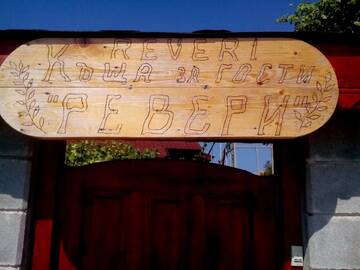 K REVERI
Къща за гости
"РЕВЕРИ"